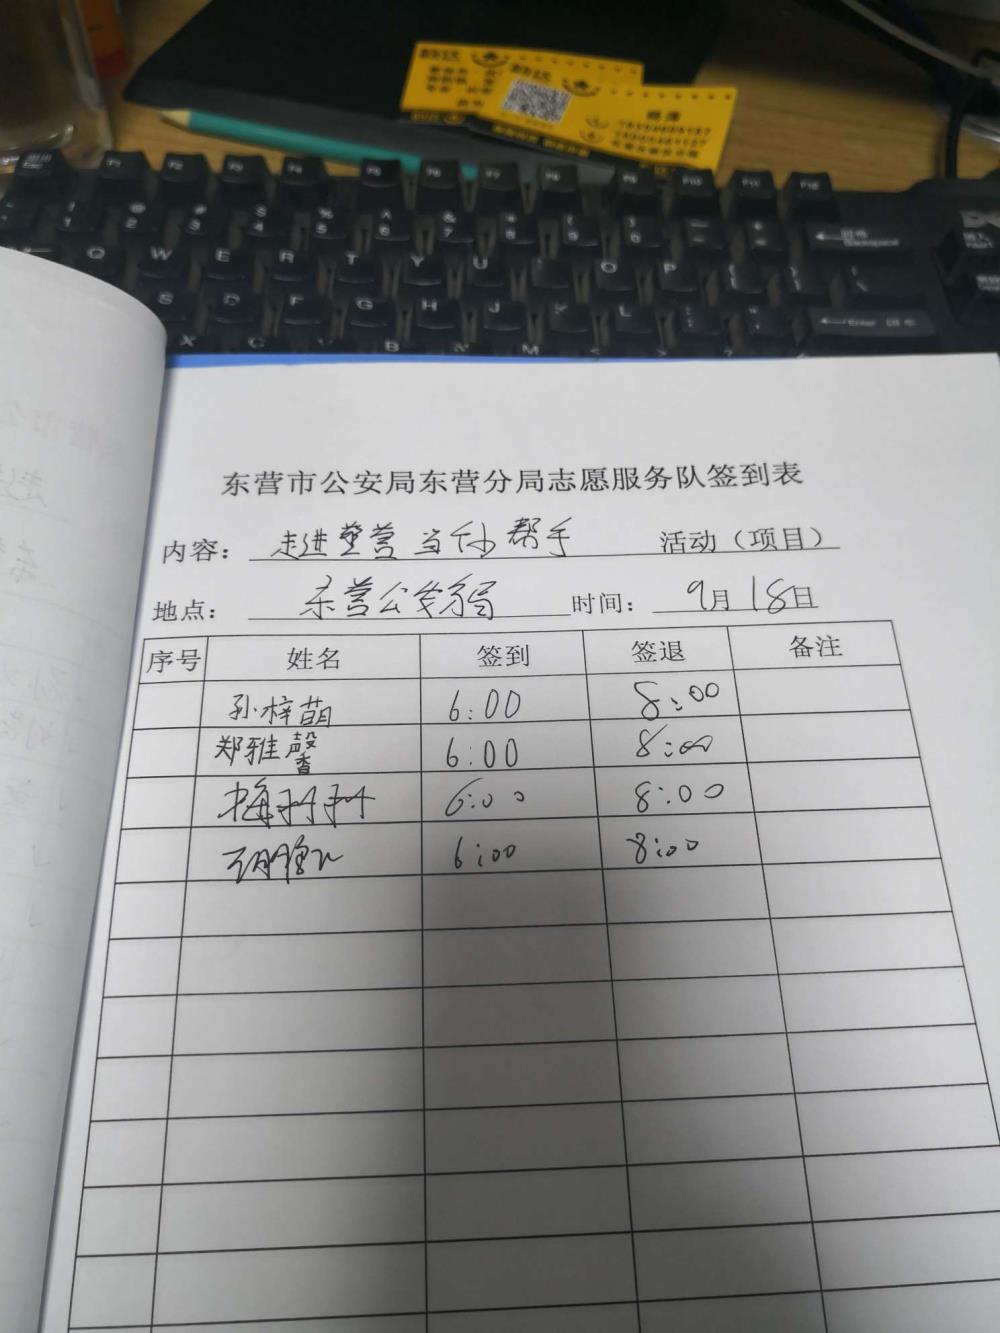 东营市公安局东营分局志愿服务队签到表
内容： 走进警营 当个小帮手 活动（项目）
地点： 东营公安分局 时间： 9月18日
序号 姓名 签到 签退 备注
孙梓萌 6:00 8:00
郑雅馨 6:00 8:00
6:00 8:00
6:00 8:00
F1 F2 F3 F4 F5 F6 F7 F8 F9 F10 F11 F12
Backspace
Q W E R T Y U O P
S D F G H J K L
Enter
X C B N M